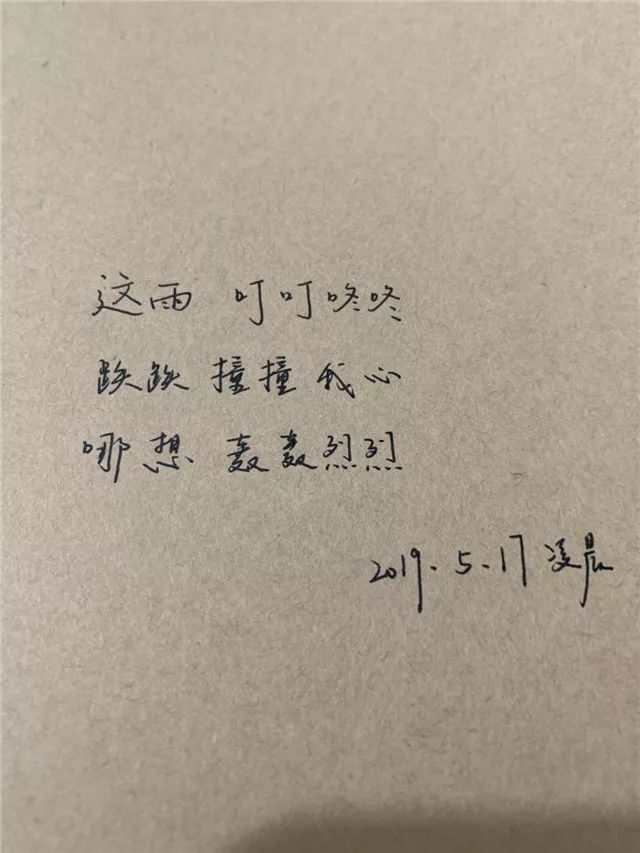 这雨 叮叮咚咚
跌跌撞撞我心
哪想 轰轰烈烈
2019.5.17 凌晨